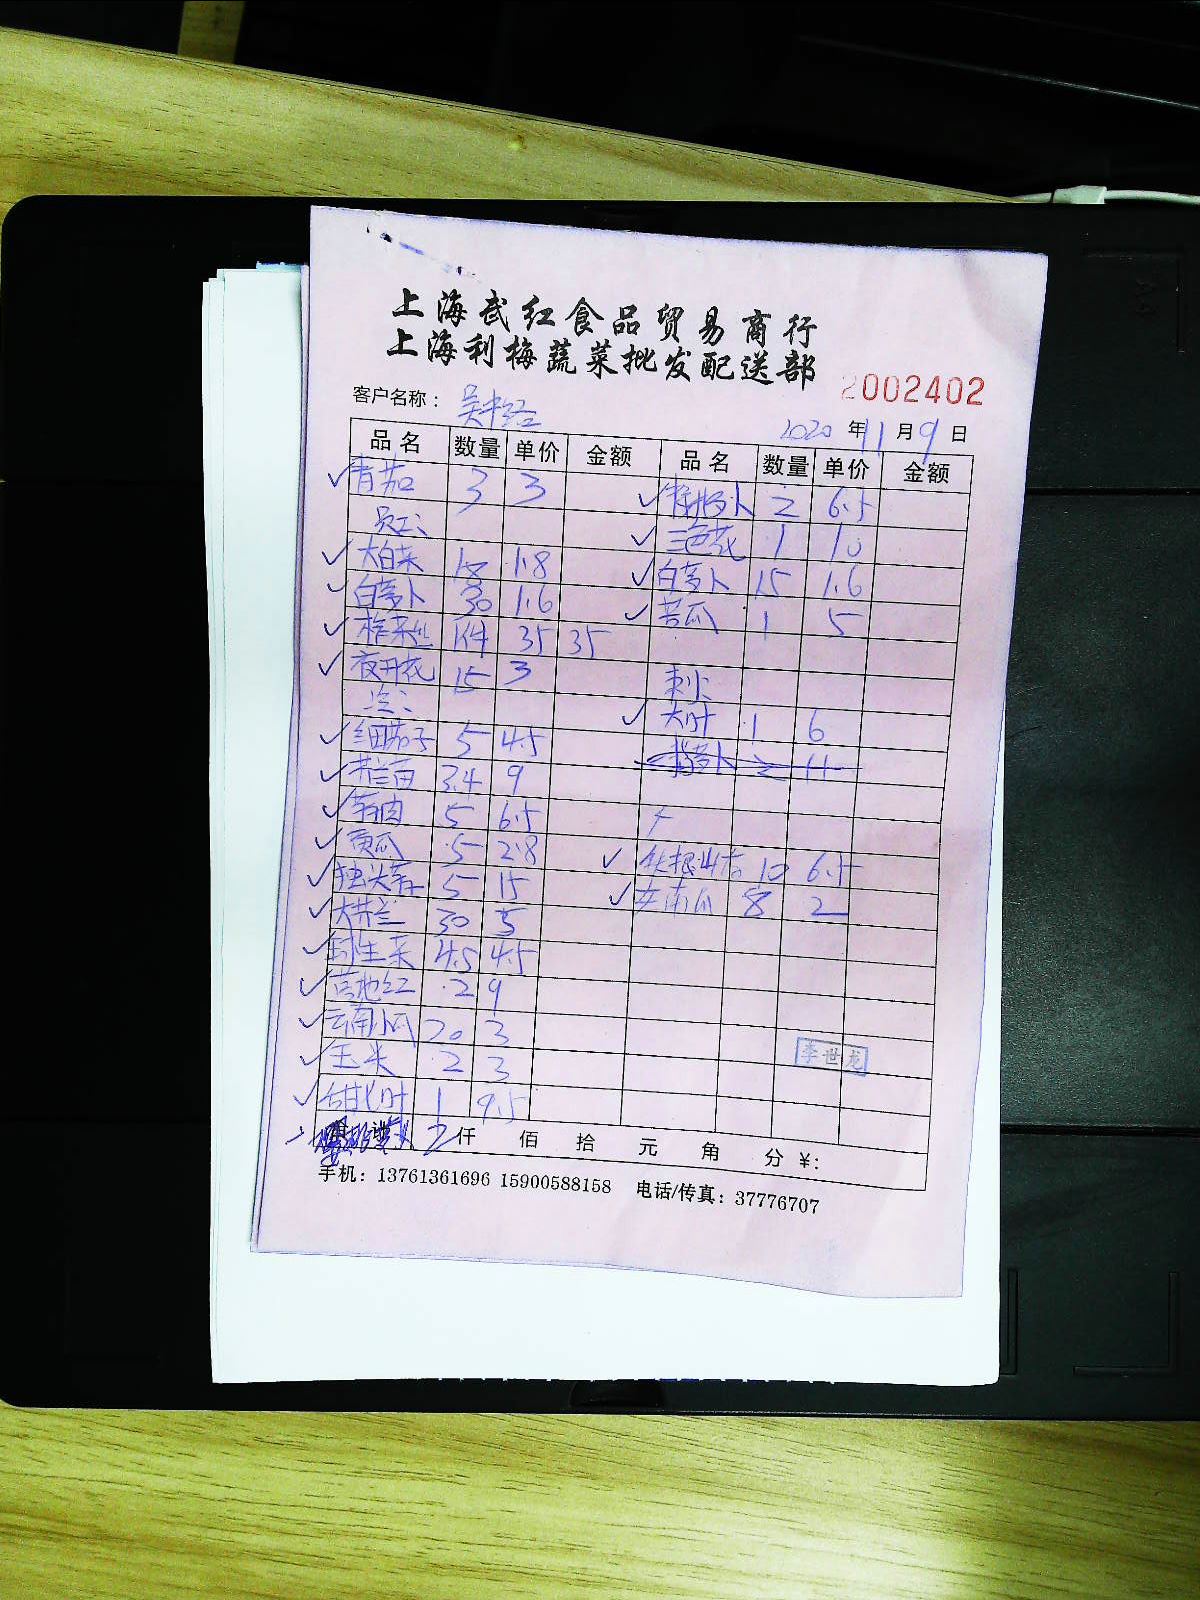 上海武红食品贸易商行
上海利梅蔬菜批发配送部
2002402
客户名称：
2020 年 11 月 9 日
品名 数量 单价 金额 品名 数量 单价 金额
✓ 青茄 3 3 ✓ 2 6.5
员工: ✓ 三色花 1 10
✓ 大白菜 18 1.8 ✓ 白萝卜 15 1.6
✓ 白萝卜 30 1.6 ✓ 苦瓜 1 5
✓ 榨菜丝 1件 35 35
✓ 夜开花 15 3 刺身
冷: ✓ 大叶 1 6
✓ 细茄子 5 4.5 2 11
✓ 芥兰苗 3.4 9
✓ 5 6.5
✓ 黄瓜 5 2.8 ✓ 10 6.5
✓ 独头蒜 5 15 ✓ 老南瓜 8 2
✓ 大芥兰 30 5
✓ 球生菜 4.5 4.5
✓ 2 9
✓ 云南小瓜 20 3
✓ 玉米 2 3
✓ 1 9.5
2 仟 佰 拾 元 角 分 ¥:
李世龙
手机：13761361696 15900588158 电话/传真：37776707